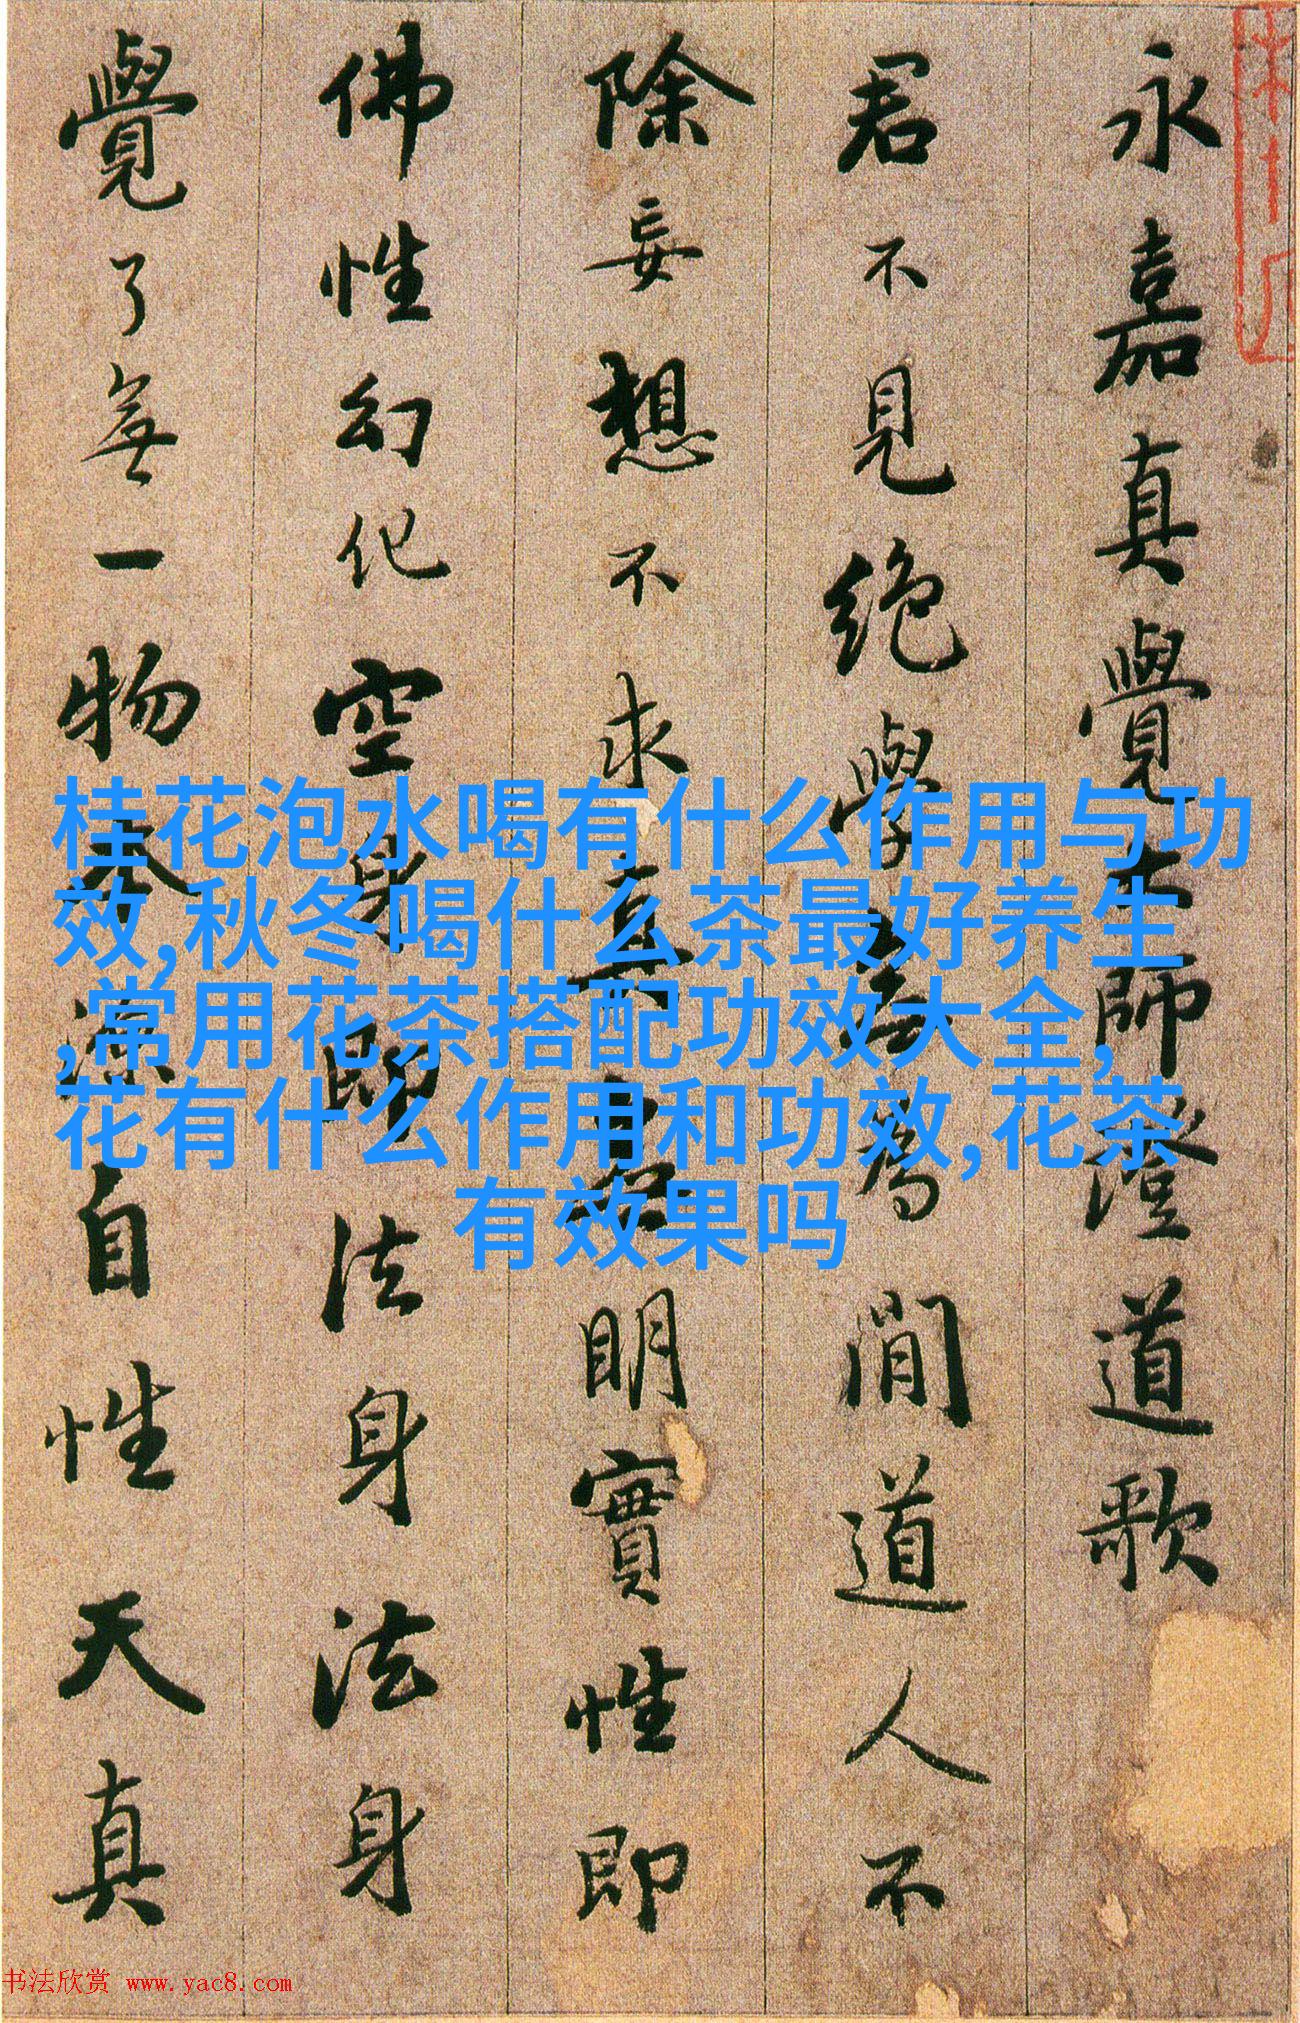 永嘉真覺大師證道歌
君不見絕學無為閒道人不
除妄想不求真無明實性即
佛性幻化空身即法身法身
覺了無一物本源自性天真
桂花泡水喝有什么作用与功
效,秋冬喝什么茶最好养生
,常用花茶搭配功效大全,
花有什么作用和功效,花茶
有效果吗
书法欣赏 www.yac8.com